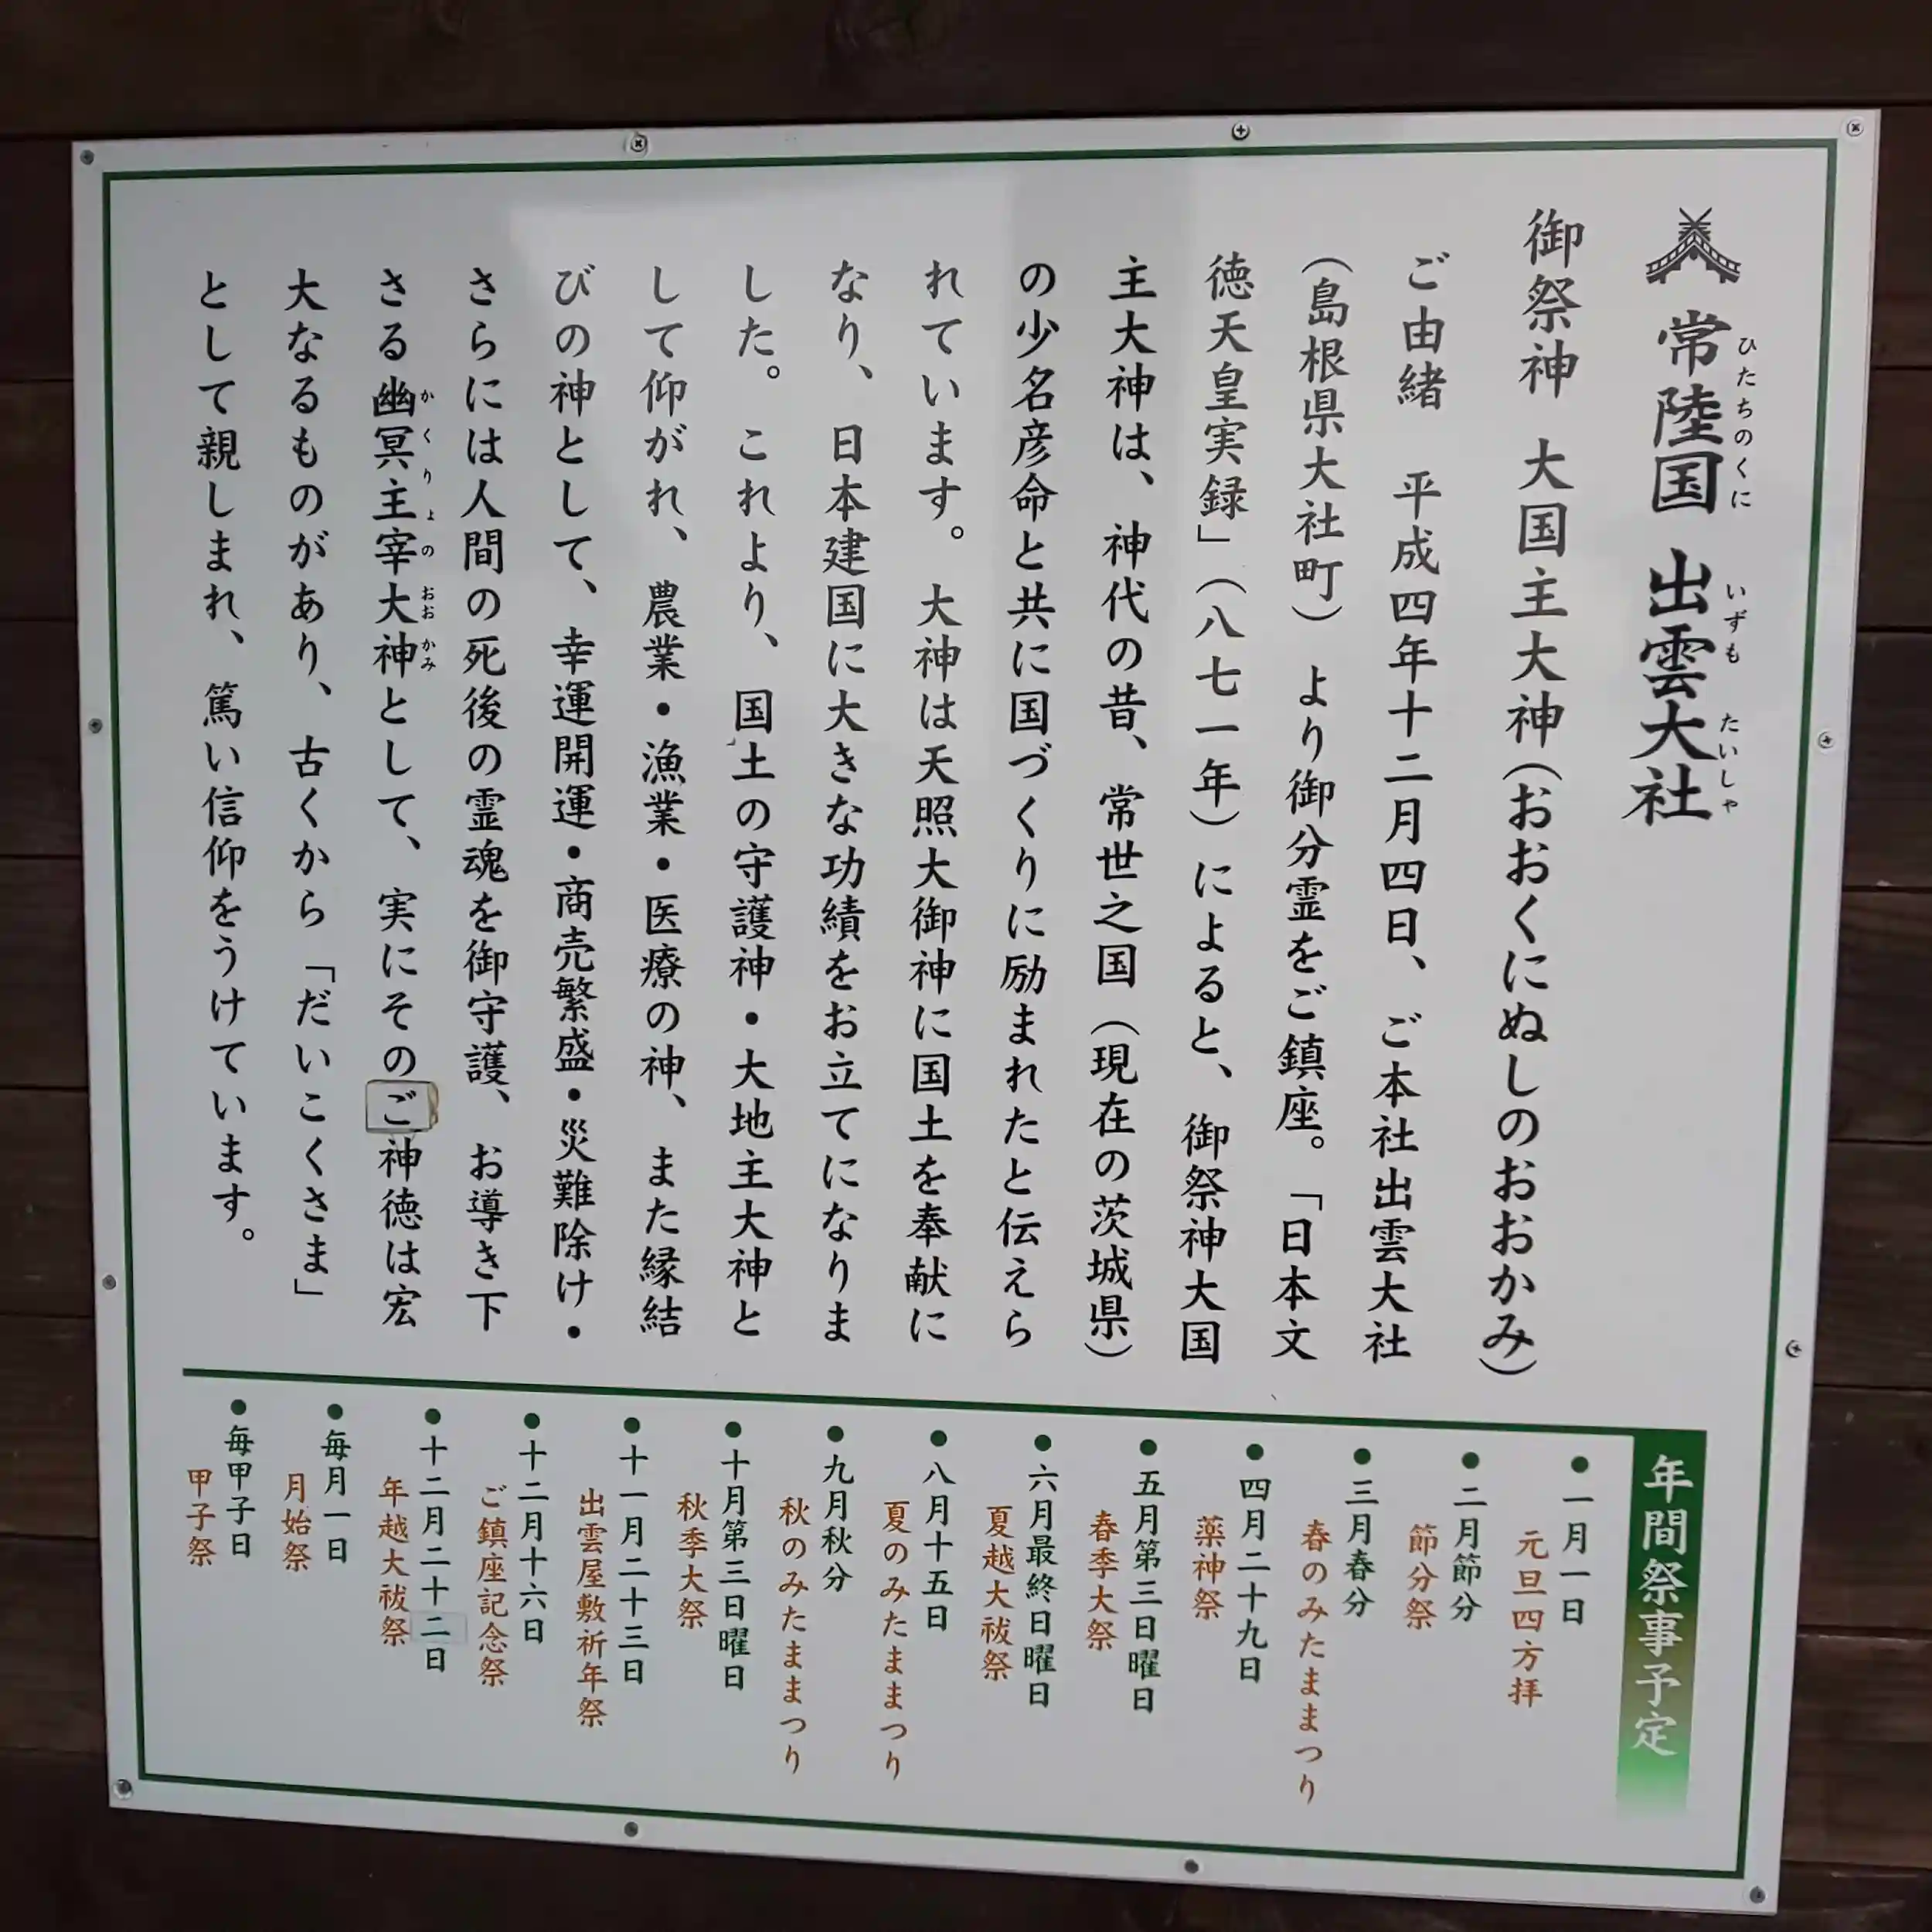 常陸国 出雲大社
ひたちのくに いずも たいしゃ
御祭神 大国主大神(おおくにぬしのおおかみ)
ご由緒 平成四年十二月四日、ご本社出雲大社
(島根県大社町)より御分霊をご鎮座。「日本文
徳天皇実録」(八七一年)によると、御祭神大国
主大神は、神代の昔、常世之国(現在の茨城県)
の少名彦命と共に国づくりに励まれたと伝えら
れています。大神は天照大御神に国土を奉献に
なり、日本建国に大きな功績をお立てになりま
した。これより、国土の守護神・大地主大神と
して仰がれ、農業・漁業・医療の神、また縁結
びの神として、幸運開運・商売繁盛・災難除け・
さらには人間の死後の霊魂を御守護、お導き下
さる幽冥主宰大神として、実にそのご神徳は宏
かくりよの おおかみ
大なるものがあり、古くから「だいこくさま」
として親しまれ、篤い信仰をうけています。
年間祭事予定
●一月一日
元旦四方拝
●二月節分
節分祭
●三月春分
春のみたままつり
●四月二十九日
薬神祭
●五月第三日曜日
春季大祭
●六月最終日曜日
夏越大祓祭
●八月十五日
夏のみたままつり
●九月秋分
秋のみたままつり
●十月第三日曜日
秋季大祭
●十一月二十三日
出雲屋敷祈年祭
●十二月十六日
ご鎮座記念祭
●十二月二十二日
年越大祓祭
●毎月一日
月始祭
●毎甲子日
甲子祭